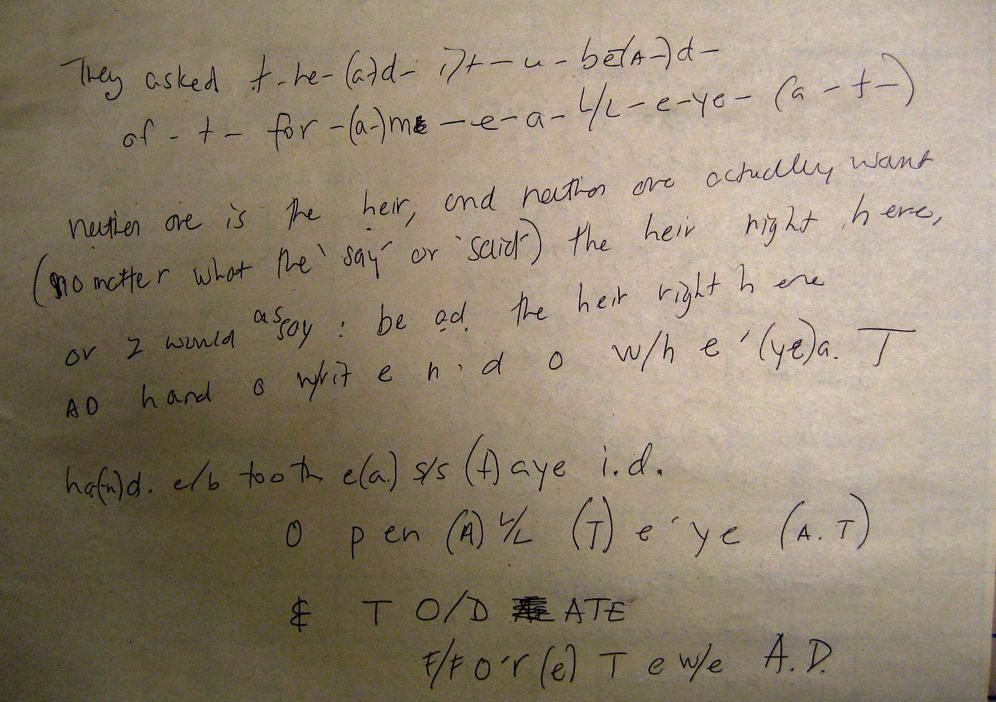 They asked t-he-(a)d- i)t-u-be(A-)d-
of-t- for-(a-)m-e-a-L/L-e-ye-(a-t-)
neither one is the heir, and neither one actually want
(no matter what the 'say' or 'said') the heir right here,
or I would as say: be ad. the heir right here
AD hand o w/rit e n.d o w/h e'(ye)a. T
ha(n)d. e/b tooth e(a.) s/s (t) aye i.d.
O pen (A) L/L (T) e'ye (A.T)
& T O/D ATE
F/F O'r(e) T e w/e A.D.